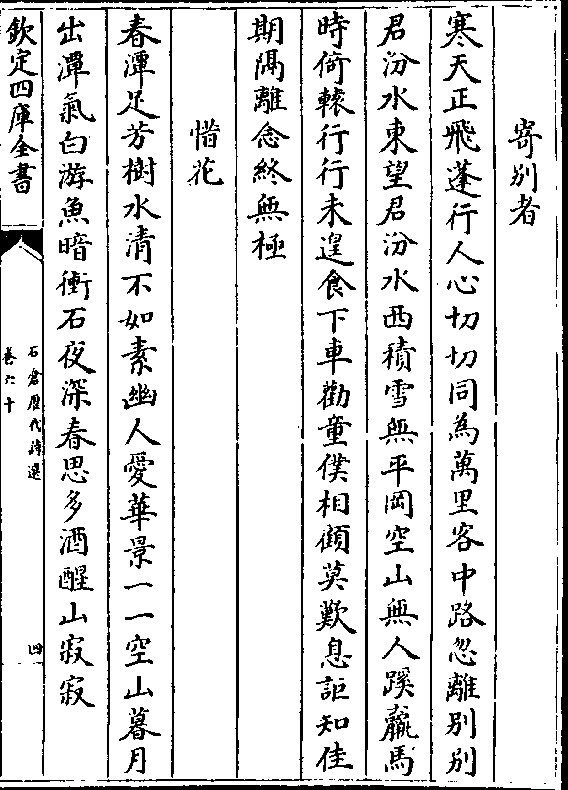 寄别者
寒天正飛蓬行人心切切同為萬里客中路忽離别别
君汾水東望君汾水西積雪無平岡空山無人蹊羸馬
時倚轅行行未遑食下車勸童僕相顧莫歎息詎知佳
期隔離念終無極
惜花
春潭足芳樹水清不如素幽人愛華景一一空山暮月
出潭氣白游魚暗衝石夜深春思多酒醒山寂寂
欽定四庫全書
石倉歷代詩選
卷六十
四